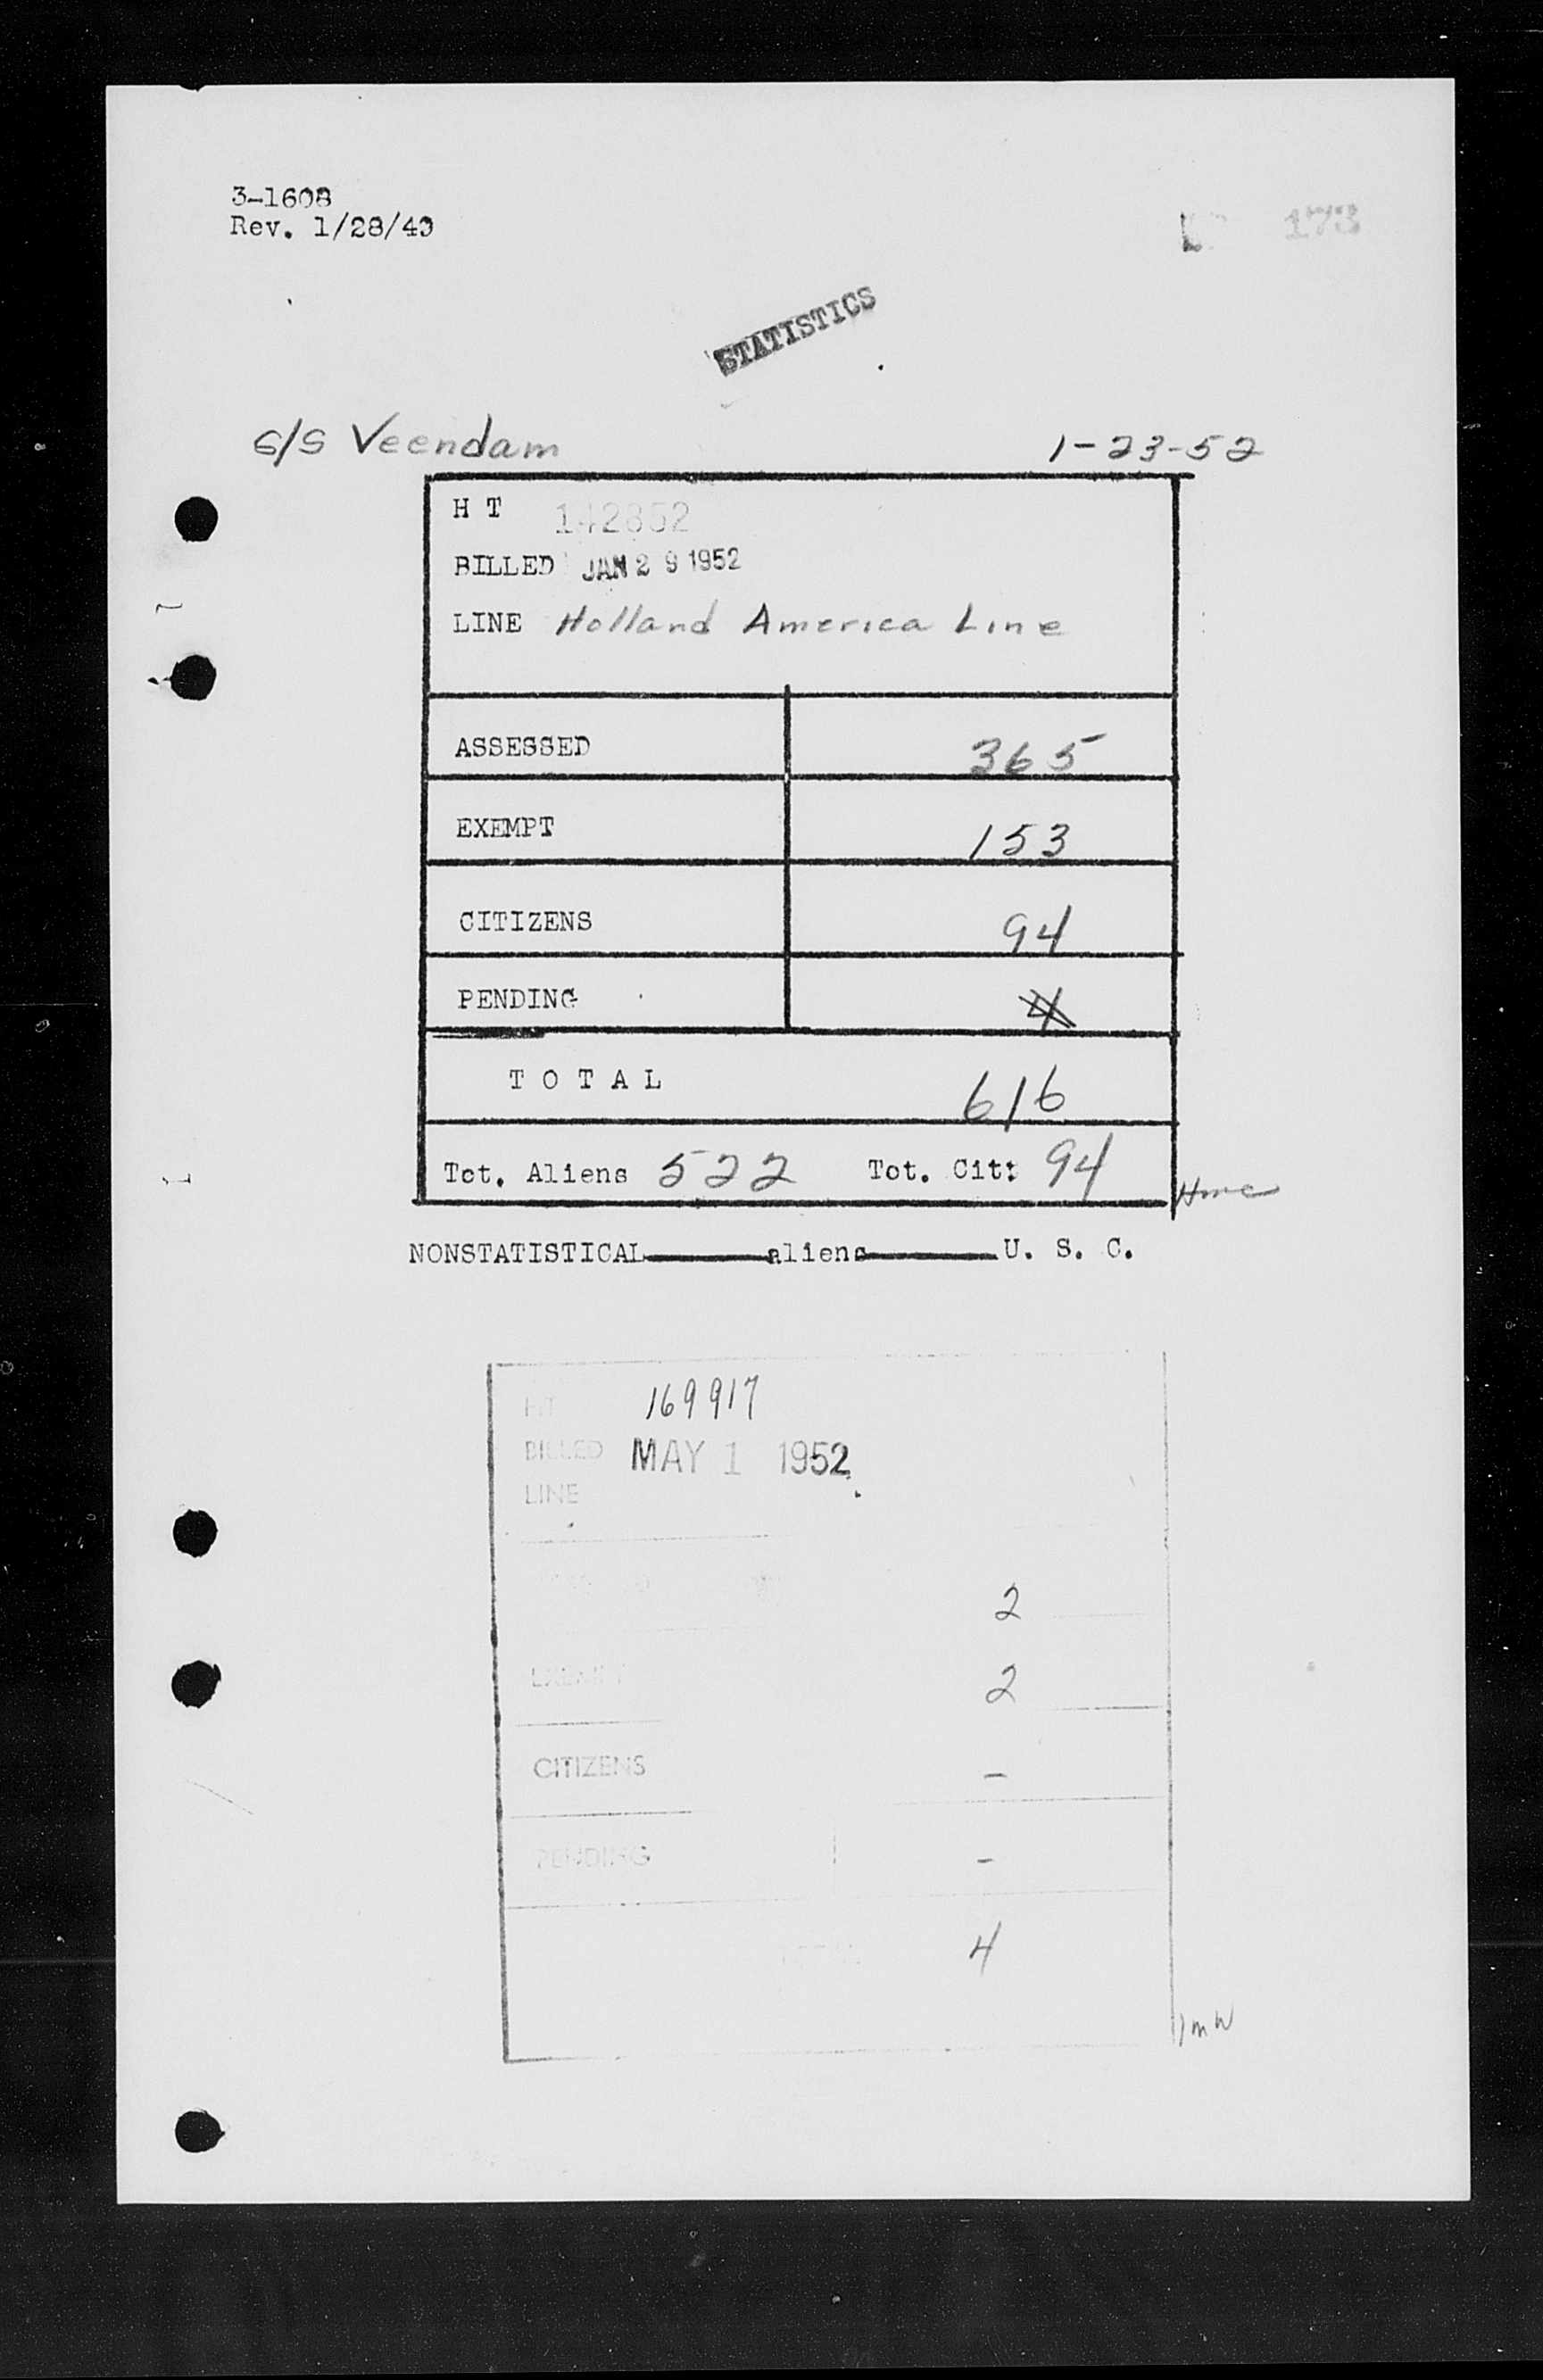 3-1608
Rev. 1/28/49
173
STATISTICS
S/S Veendam 1-23-52
H T 142852
BILLED JAN 29 1952
LINE Holland America Line
ASSESSED 365
EXEMPT 153
CITIZENS 94
PENDING 4
T O T A L 616
Tot. Aliens 522 Tot. Cit: 94
Hmc
NONSTATISTICAL aliens U. S. C.
HT 169917
BILLED MAY 1 1952
LINE
2
EXEMPT 2
CITIZENS -
PENDING -
4